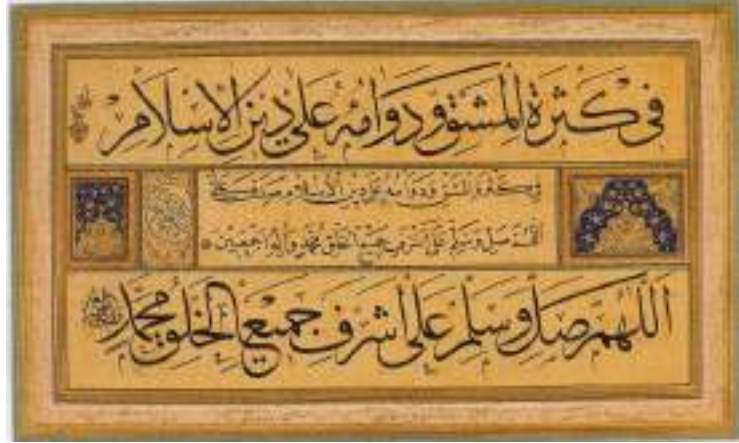 في كثرة المشق ودوامه على دين الإسلام
في كثرة المشق ودوامه على دين الاسلام
اللهم صل وسلم على اشرف جميع الخلق محمد وآله اجمعين
اللهم صل وسلم على اشرف جميع الخلق محمد